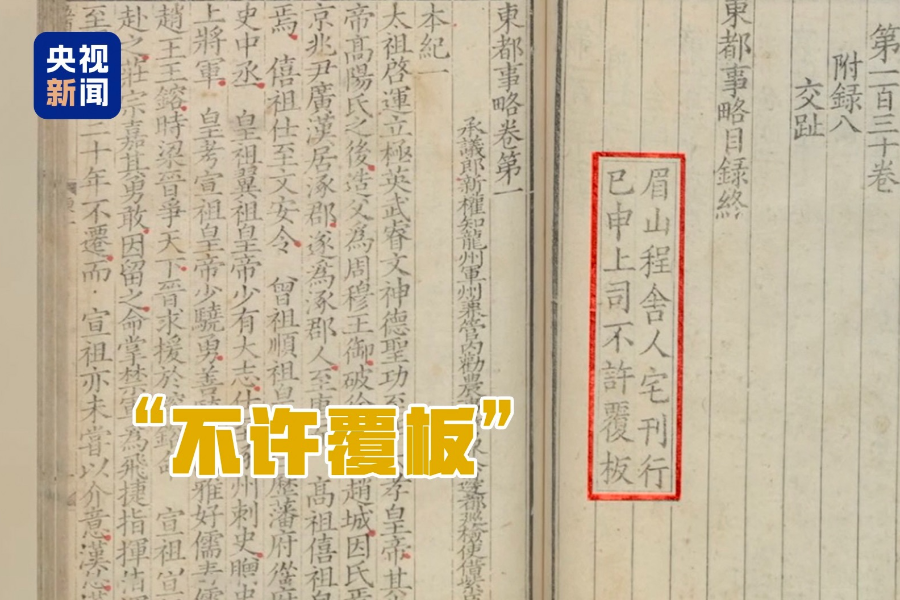 央视
新闻
第一百三十卷
附録八
交趾
東都事略目録終
眉山程舎人宅刊行
已申上司不許覆板
東都事略卷第一
承議郎新權知龍州軍州兼管内勸農 邊都巡檢使借紫
本紀一
太祖啓運立極英武睿文神德聖功至 孝皇帝其
帝高陽氏之後造父為周穆王御破徐 趙城因氏焉
京兆尹廣漢居涿郡遂為涿郡人至 高祖僖祖
焉僖祖仕至文安令 曾祖順祖皇 歷藩府從府
史中丞 皇祖翼祖皇帝少有大志仕 州刺史贈
上將軍 皇考宣祖皇帝少驍勇善 雅好儒
趙王王鎔時梁晉爭天下晉求援於 宣祖
赴之莊宗嘉其勇敢因留之命掌禁軍為飛捷指揮
至 二十年不遷而 宣祖亦未嘗以介意漢
“不许覆板”